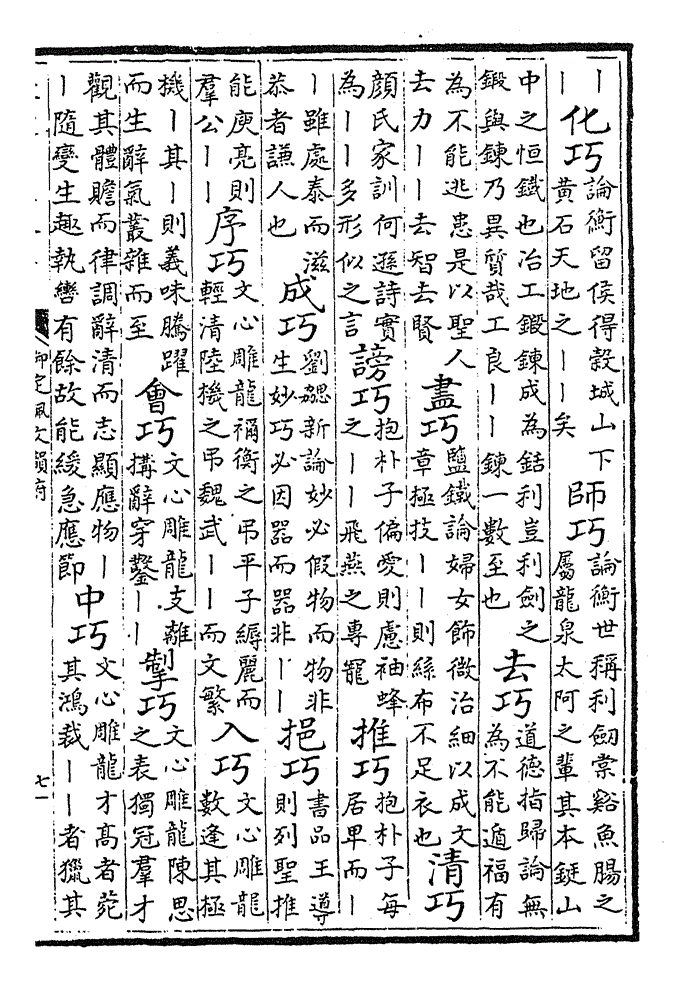 丨丨化巧論衡留侯得榖城山下黄石天地之丨丨矣師巧論衡世稱利劒棠谿魚腸之屬龍泉太阿之輩其本鋌山
中之恒鐵也冶工鍛鍊成為銛利豈利劍之鍛與鍊乃異質哉工良丨丨鍊一數至也去巧道德指歸論無為不能遁福有
為不能逃患是以聖人去力丨丨去智去賢盡巧鹽鐵論婦女飾微治細以成文章極技丨丨則絲布不足衣也清巧
顔氏家訓何遜詩實為丨丨多形似之言謗巧抱朴子偏愛則慮袖蜂之丨丨飛燕之專寵推巧抱朴子每居卑而丨
丨雖處泰而滋恭者謙人也成巧劉勰新論妙必假物而物非生妙巧必因器而器非丨丨挹巧書品王導則列聖推
能庾亮則羣公丨丨序巧文心雕龍禰衡之弔平子縟麗而輕清陸機之弔魏武丨丨而文繁入巧文心雕龍數逢其極
機丨其丨則義味騰躍而生辭氣叢雜而至會巧文心雕龍支離搆辭穿鑿丨丨掣巧文心雕龍陳思之表獨冠羣才
觀其體贍而律調辭清而志顯應物丨丨隨變生趣執轡有餘故能緩急應節中巧文心雕龍才高者菀其鴻裁丨丨者獵其
御定佩文韻府
七一